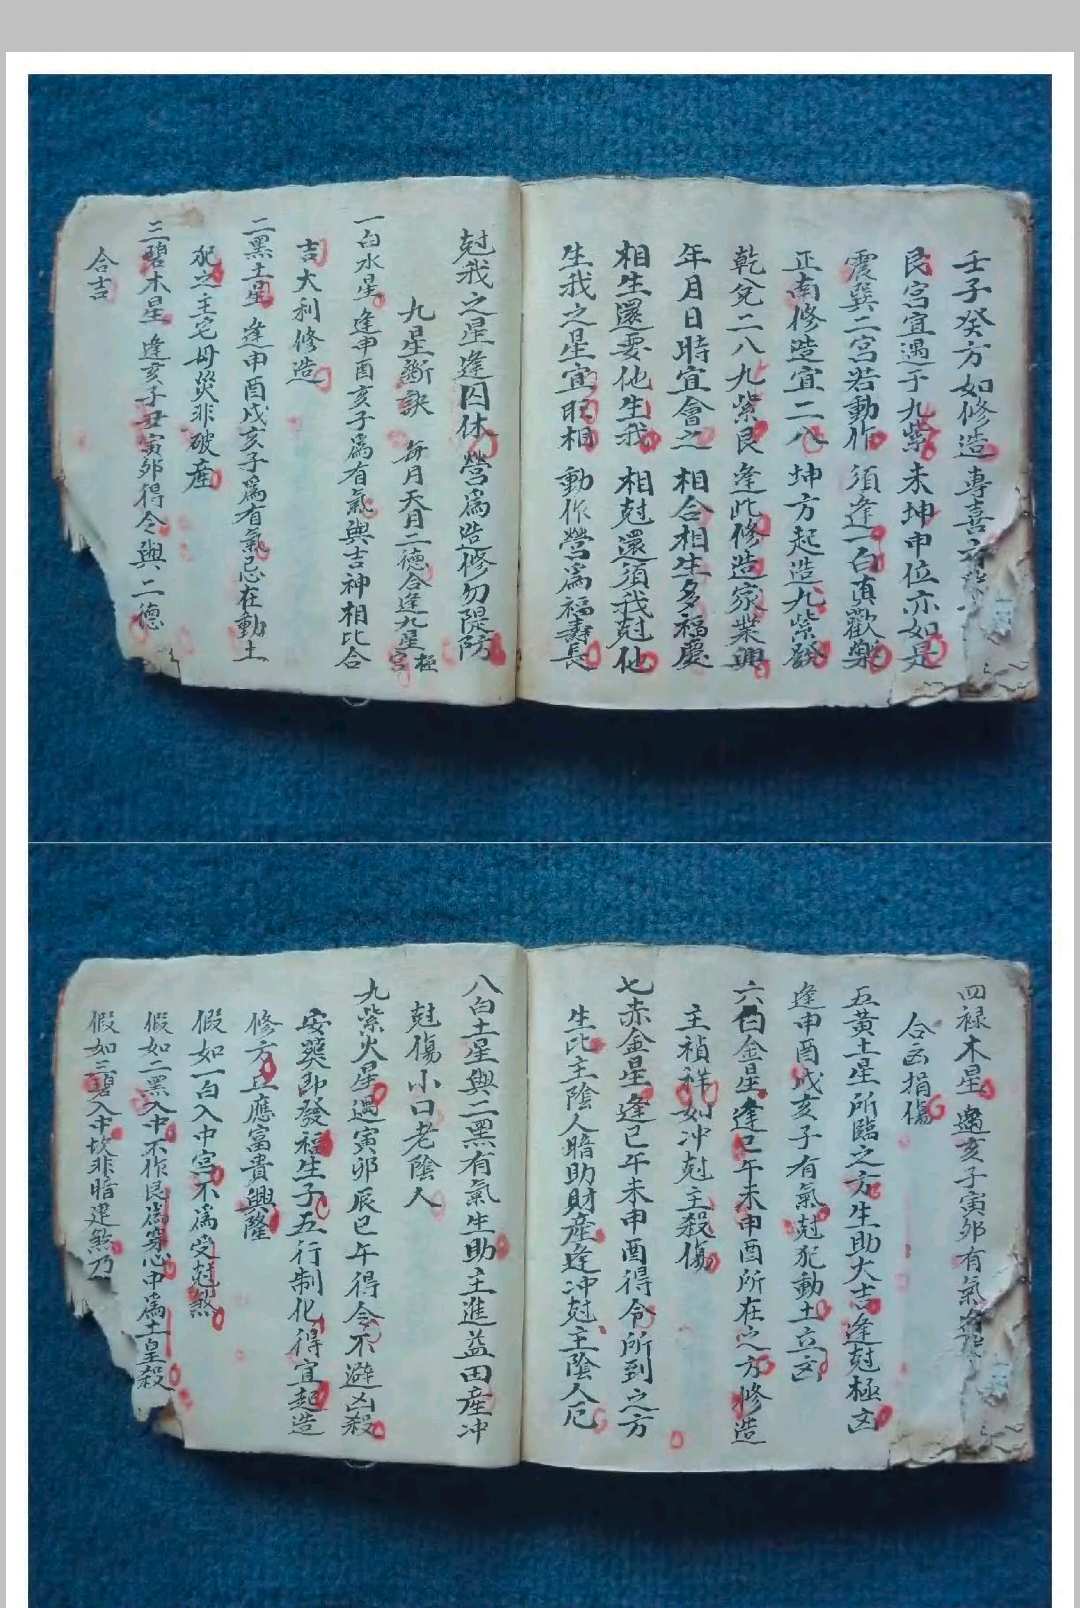 壬子癸方如修造 專喜六
艮宮宜遇于九紫 未坤申位亦如是
震巽二宮若動作 須逢一白真歡樂
正南修造宜二八 坤方起造九紫發
乾兌二八九紫艮 逢此修造家業興
年月日時宜會之 相合相生多福慶
相生還要他生我 相尅還須我尅他
生我之星宜旺相 動作營為福壽長
尅我之星逢囚休 營為造修勿隄防
九星斷訣 每月天月二德合逢九星極宮
一白水星 逢申酉亥子為有氣與吉神相比合
吉大利修造
二黑土星 逢申酉戌亥子為有氣忌在動土
犯之主宅母災非破產
三碧木星 逢亥子丑寅卯得令與二德
合吉
四祿木星 遇亥子寅卯有氣
合凶損傷
五黃土星所臨之方生助大吉逢尅極凶
逢申酉戌亥子有氣尅犯動土立凶
六白金星 逢巳午未申酉所在之方修造
主禎祥如冲尅主殺傷
七赤金星 逢巳午未申酉得令所到之方
生比主陰人暗助財產逢冲尅主陰人厄
八白土星與二黑有氣生助主進益田產冲
尅傷小口老陰人
九紫火星遇寅卯辰巳午得令不避凶殺
安葬即發福生子五行制化得宜起造
修方立應富貴興隆
假如一白入中宮不為受尅煞
假如二黑入中不作艮為穿心中為土皇殺
假如三碧入中坎非暗建煞乃